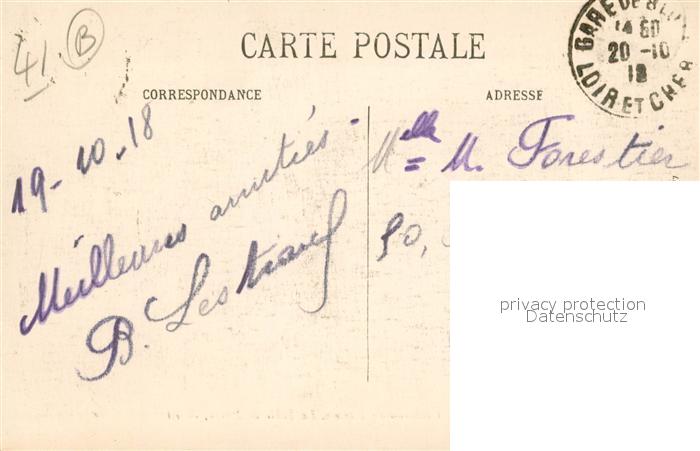 41 B
CARTE POSTALE
GARE DE BLOIS
14 30
20-10
18
LOIR ET CHER
CORRESPONDANCE
ADRESSE
19-10-18
Meilleures amitiés.
B.
Melle M. Forestier
50,
privacy protection
Datenschutz